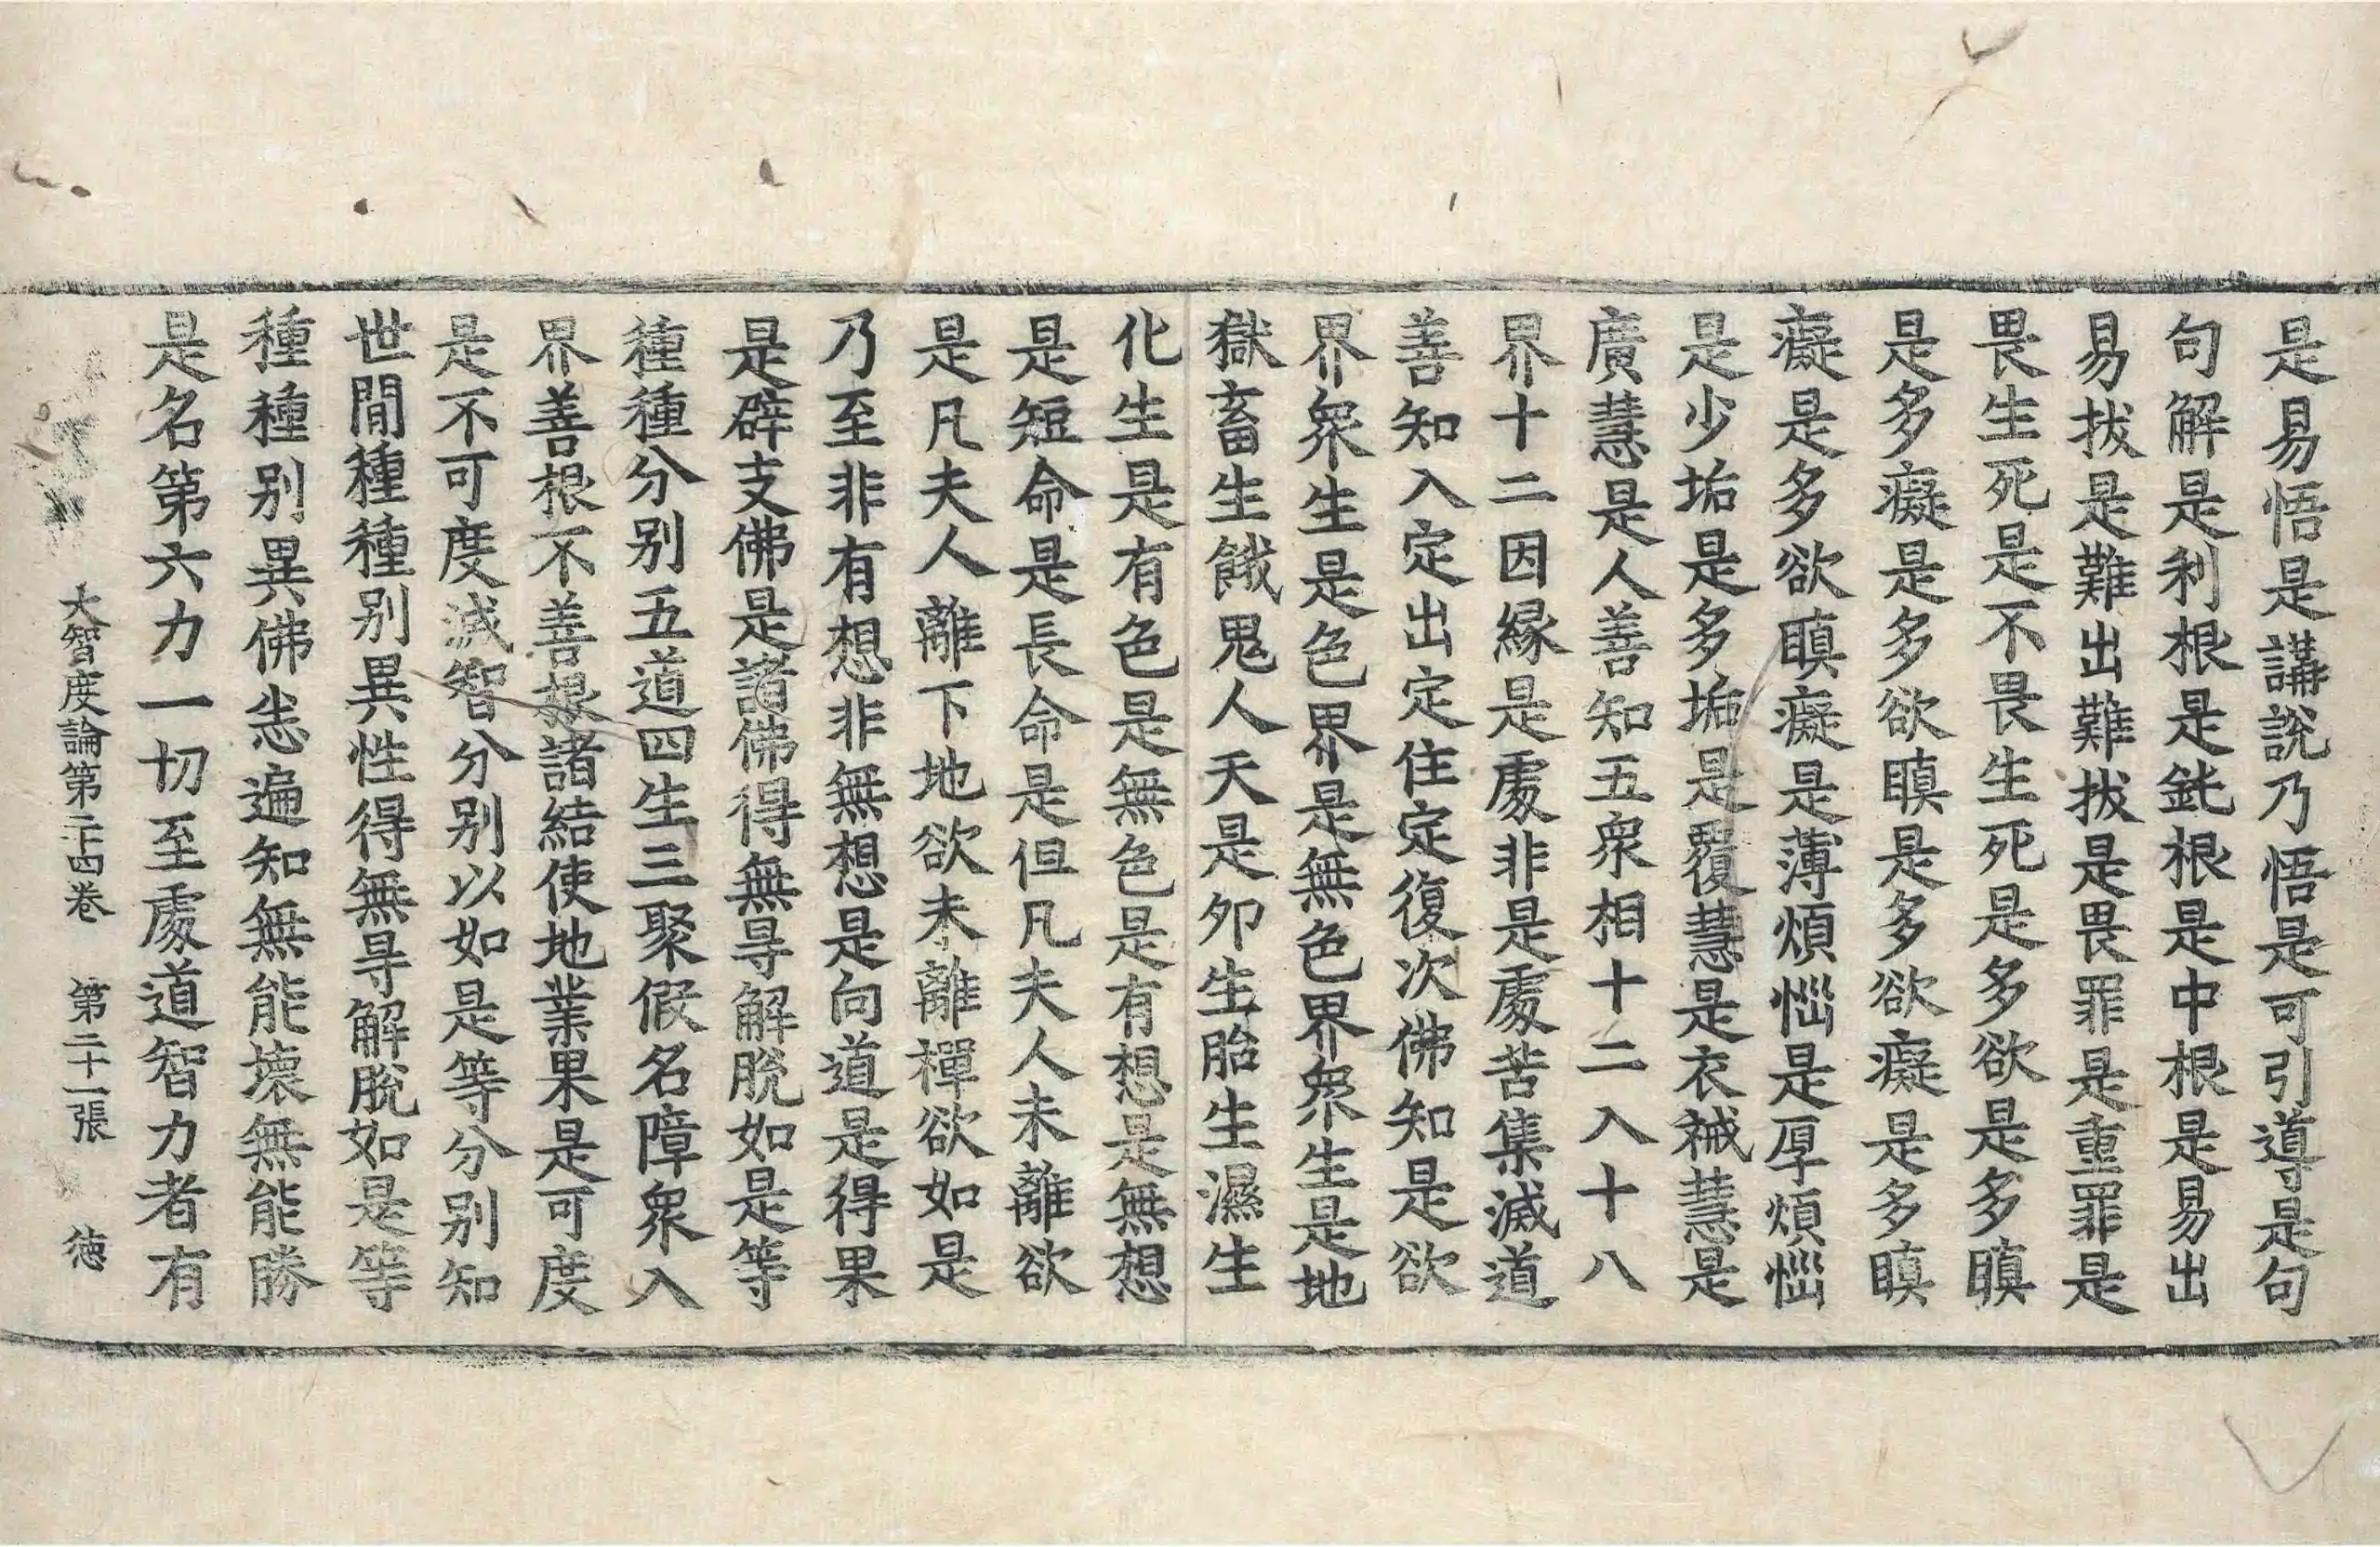 是易悟是講說乃悟是可引導是句
句解是利根是鈍根是中根是易出
易拔是難出難拔是畏罪是重罪是
畏生死是不畏生死是多欲是多瞋
是多癡是多欲瞋是多欲癡是多瞋
癡是多欲瞋癡是薄煩惱是厚煩惱
是少垢是多垢是覆慧是衣祴慧是
廣慧是人善知五衆相十二入十八
界十二因緣是處非是處苦集滅道
善知入定出定住定復次佛知是欲
界衆生是色界是無色界衆生是地
獄畜生餓鬼人天是卵生胎生濕生
化生是有色是無色是有想是無想
是短命是長命是但凡夫人未離欲
是凡夫人離下地欲未離禪欲如是
乃至非有想非無想是向道是得果
是辟支佛是諸佛得無㝵解脫如是等
種種分別五道四生三聚假名障衆入
界善根不善根諸結使地業果是可度
是不可度滅智分別以如是等分別知
世間種種別異性得無㝵解脫如是等
種種別異佛悉遍知無能壞無能勝
是名第六力一切至處道智力者有
大智度論第二十四卷 第二十一張 徳